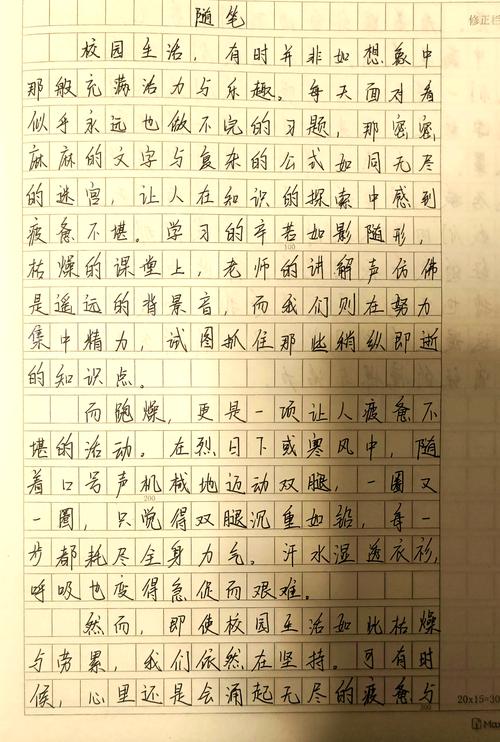 随笔
修正栏
校园生活，有时并非如想象中
那般充满活力与乐趣。每天面对着
似乎永远也做不完的习题，那密密
麻麻的文字与复杂的公式如同无尽
的迷宫，让人在知识的探索中感到
疲惫不堪。学习的辛苦如影随形，
100
枯燥的课堂上，老师的讲解声仿佛
是遥远的背景音，而我们则在努力
集中精力，试图抓住那些稍纵即逝
的知识点。
而跑燥，更是一项让人疲惫不
堪的活动。在烈日下或寒风中，随
着口号声机械地迈动双腿，一圈又
200
一圈，只觉得双腿沉重如铅，每一
步都耗尽全身力气。汗水湿透衣衫，
呼吸也变得急促而艰难。
然而，即使校园生活如此枯燥
与劳累，我们依然在坚持。可有时
候，心里还是会涌起无尽的疲惫与
300
20x15=30